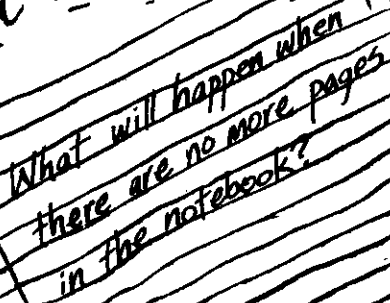 What will happen when
there are no more pages
in the notebook?